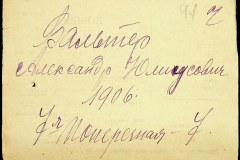 Вальтер
Александр Юлиусович
1906.
7я Поперечная - 7.